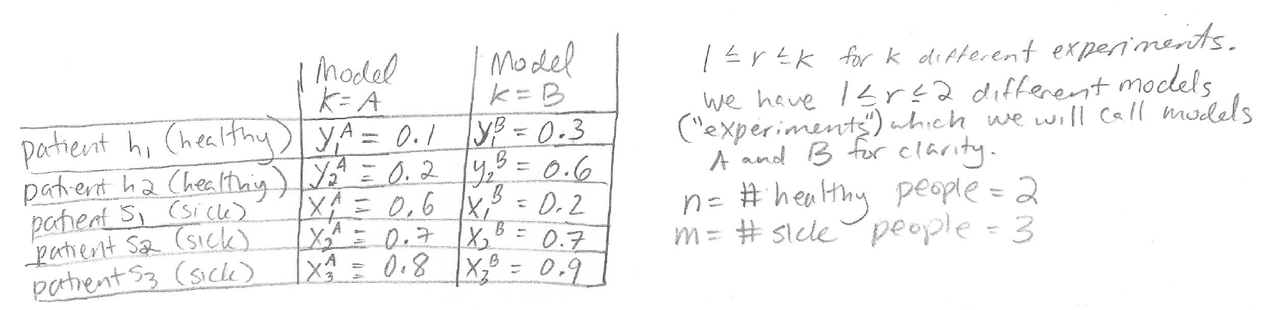 Model k=A | Model k=B
patient h₁ (healthy) | y₁ᴬ = 0.1 | y₁ᴮ = 0.3
patient h2 (healthy) | y₂ᴬ = 0.2 | y₂ᴮ = 0.6
patient S₁ (sick) | x₁ᴬ = 0.6 | x₁ᴮ = 0.2
patient S2 (sick) | x₂ᴬ = 0.7 | x₂ᴮ = 0.7
patient S3 (sick) | x₃ᴬ = 0.8 | x₃ᴮ = 0.9
1 ≤ r ≤ k for k different experiments.
We have 1 ≤ r ≤ 2 different models
("experiments") which we will call models
A and B for clarity.
n = # healthy people = 2
m = # sick people = 3